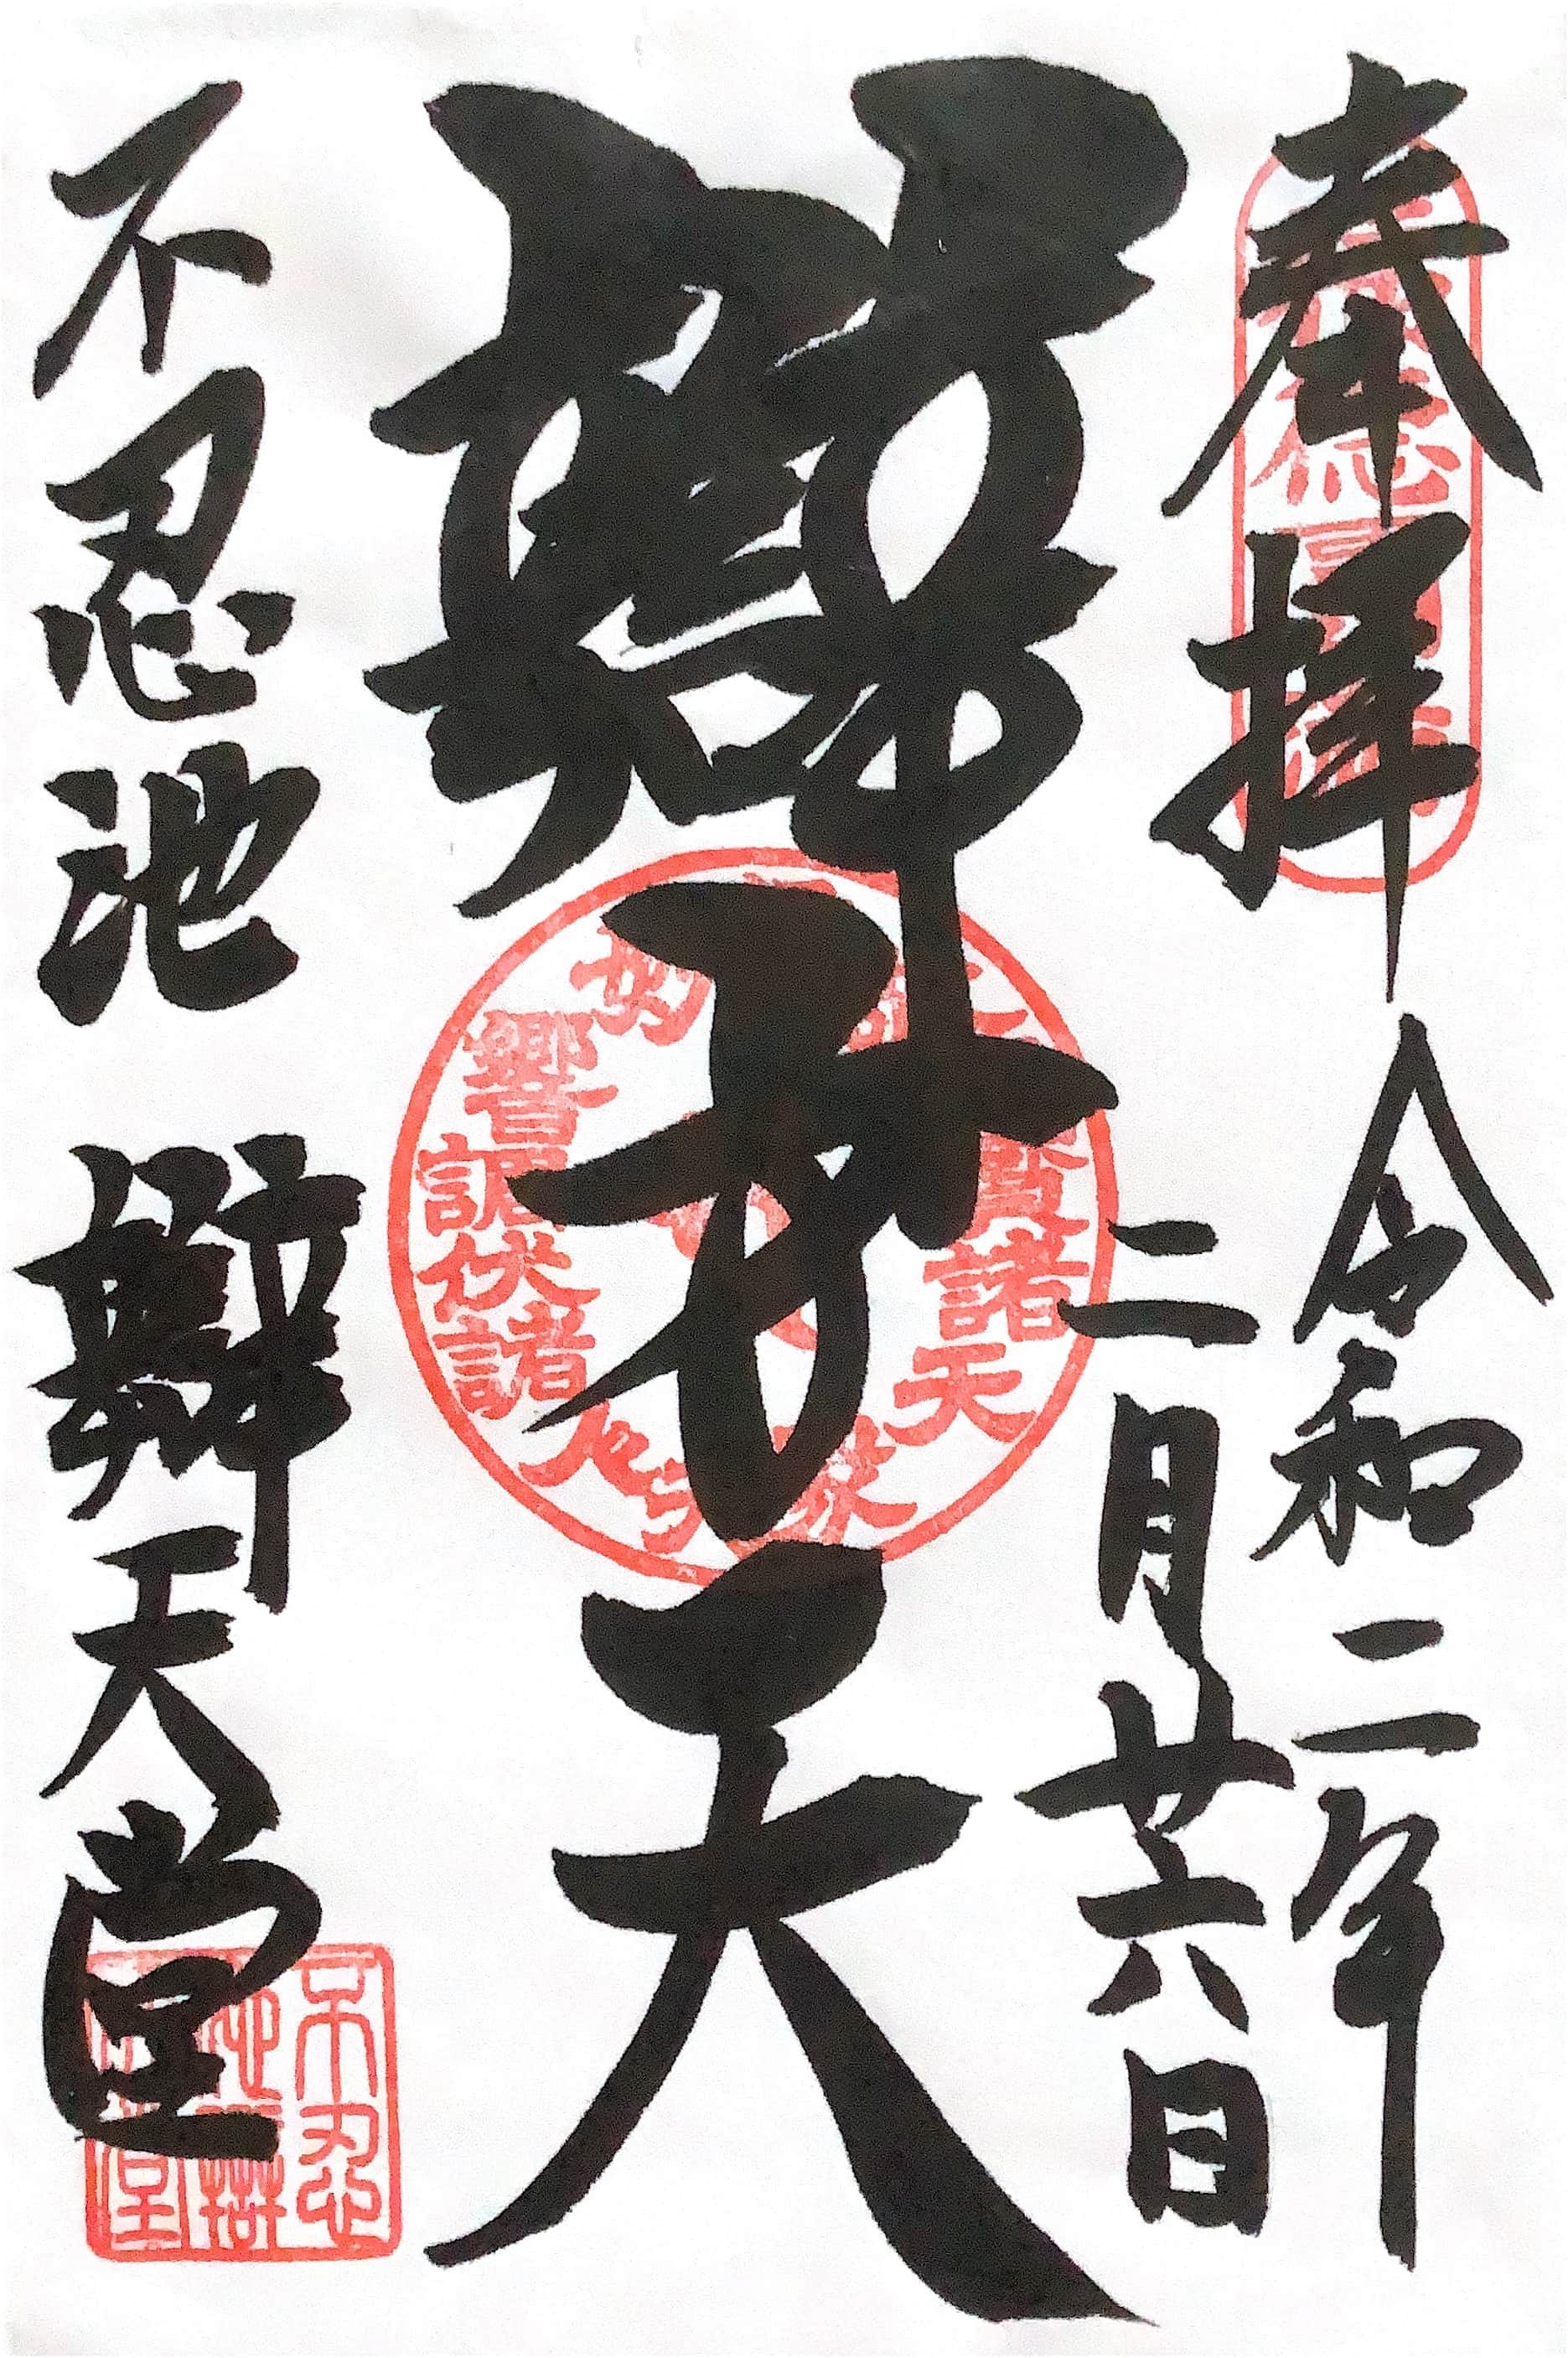 奉拝
令和二年
二月廿六日
辯才天
不忍池 辯天堂
響
諸天
調伏諸
不忍
池辯
堂